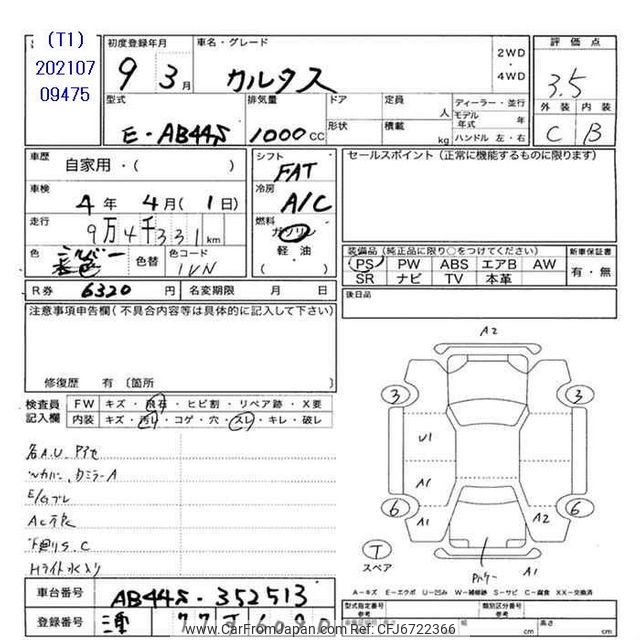 (T1)
202107
09475
初度登録年月
9 3月
車名・グレード
カルタス
2WD
・
4WD
評価点
3.5
外装 内装
C B
型式
E-AB44S
排気量
1000 CC
ドア
形状
定員 人
積載 kg
ディーラー・並行
モデル年式 年
ハンドル 左・右
車歴
自家用・( )
車検
4年 4月(1日)
走行
9万4千331km
色
シルバー
色替
色コード
1VN
シフト
FAT
冷房
A/C
燃料
ガソリン
軽・油
( )
セールスポイント(正常に機能するものに限ります)
装備品(純正品に限り○をつけてください)
PS PW ABS エアB AW
SR ナビ TV 本革
新車保証書
有・無
R券 6320円 名変期限 月 日
後日品
注意事項申告欄(不具合内容等は具体的に記入して下さい)
修復歴 有〔箇所 〕
検査員記入欄
FW キズ・飛石・ヒビ割・リペア跡・X要
内装 キズ・汚れ・コゲ・穴・スレ・キレ・破レ
各A.U
E/Gブレ
下廻りS.C
Hライト水入り
A2
3 3
U1
A1
6 6
A1 A2
T
スペア
A1
A-キズ E-エクボ U-凹み W-補修跡 S-サビ C-腐食 XX-交換済
車台番号 AB44S-352513
登録番号 三重
型式指定番号
参考
類別区分番号
参考
長さ cm 幅 cm 高さ cm
www.CarFromJapan.com Ref: CFJ6722366